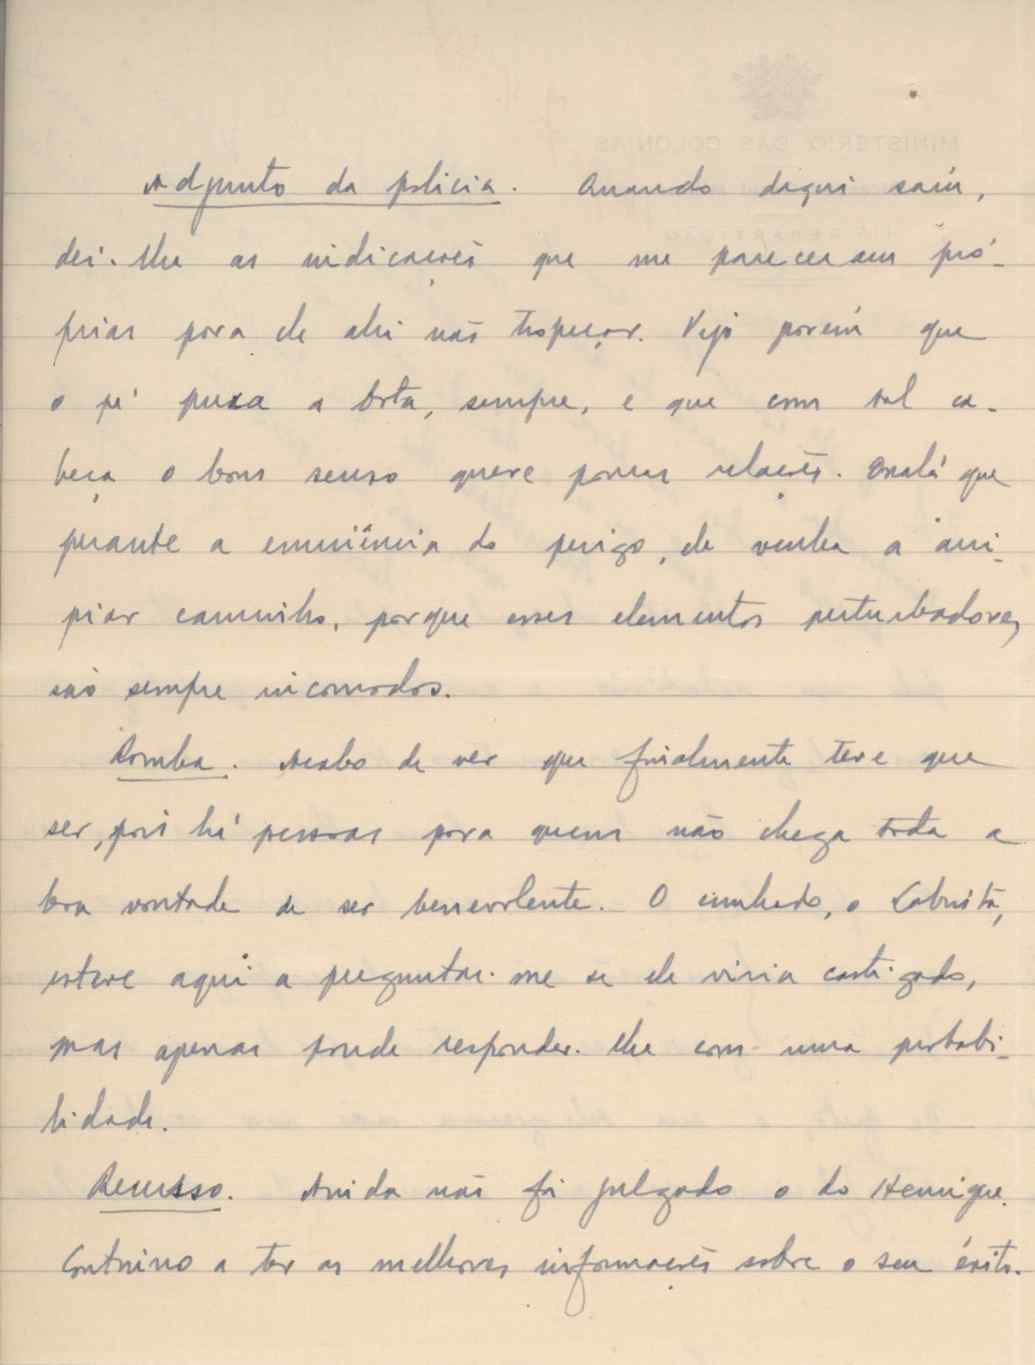 MINISTÉRIO DAS COLONIAS
Adjunto da policia. Quando daqui saíu,
dei-lhe as indicações que me pareceram pró-
prias para ele ahi não tropeçar. Vejo porém que
o pé puxa a bota, sempre, e que com tal ca-
beça o bom senso quere poucas relações. Oxalá que
perante a eminência do perigo, ele venha a arri-
piar caminho, porque esses elementos perturbadores,
são sempre incomodos.
Romba. Acabo de ver que finalmente teve que
ser, pois há pessoas para quem não chega toda a
boa vontade de ser benevolente. O cunhado, o
esteve aqui a preguntar-me se ele viria castigado,
mas apenas poude responder-lhe com uma probabi-
lidade.
Recurso. Ainda não foi julgado o do Henrique.
Continuo a ter as melhores informações sobre o seu éxito.